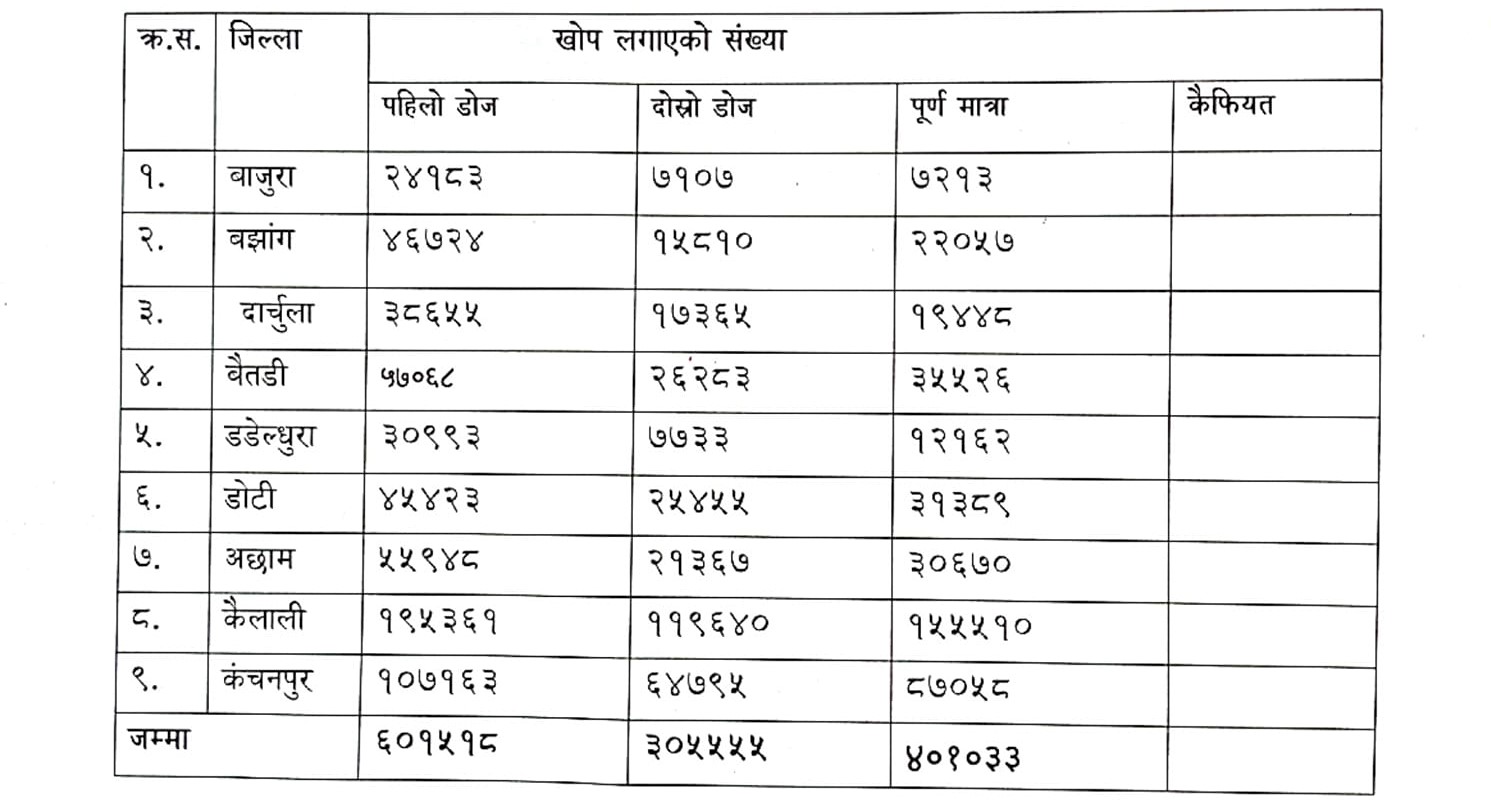 क्र.स. जिल्ला खोप लगाएको संख्या
पहिलो डोज दोस्रो डोज पूर्ण मात्रा कैफियत
१. बाजुरा २४१८३ ७१०७ ७२१३
२. बझांग ४६७२४ १५८१० २२०५७
३. दार्चुला ३८६५५ १७३६५ १९४४८
४. बैतडी ५७०६८ २६२८३ ३५५२६
५. डडेल्धुरा ३०९९३ ७७३३ १२१६२
६. डोटी ४५४२३ २५४५५ ३१३८९
७. अछाम ५५९४८ २१३६७ ३०६७०
८. कैलाली १९५३६१ ११९६४० १५५५१०
९. कंचनपुर १०७१६३ ६४७९५ ८७०५८
जम्मा ६०१५१८ ३०५५५५ ४०१०३३